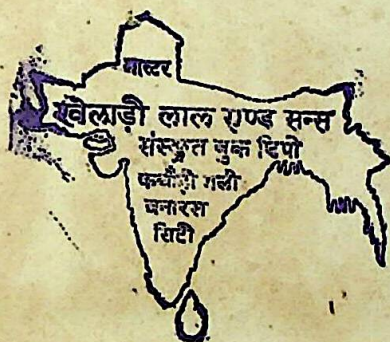 मास्टर
खेलाड़ी लाल एण्ड सन्स
संस्कृत बुक डिपो
कचौड़ी गली
बनारस
सिटी